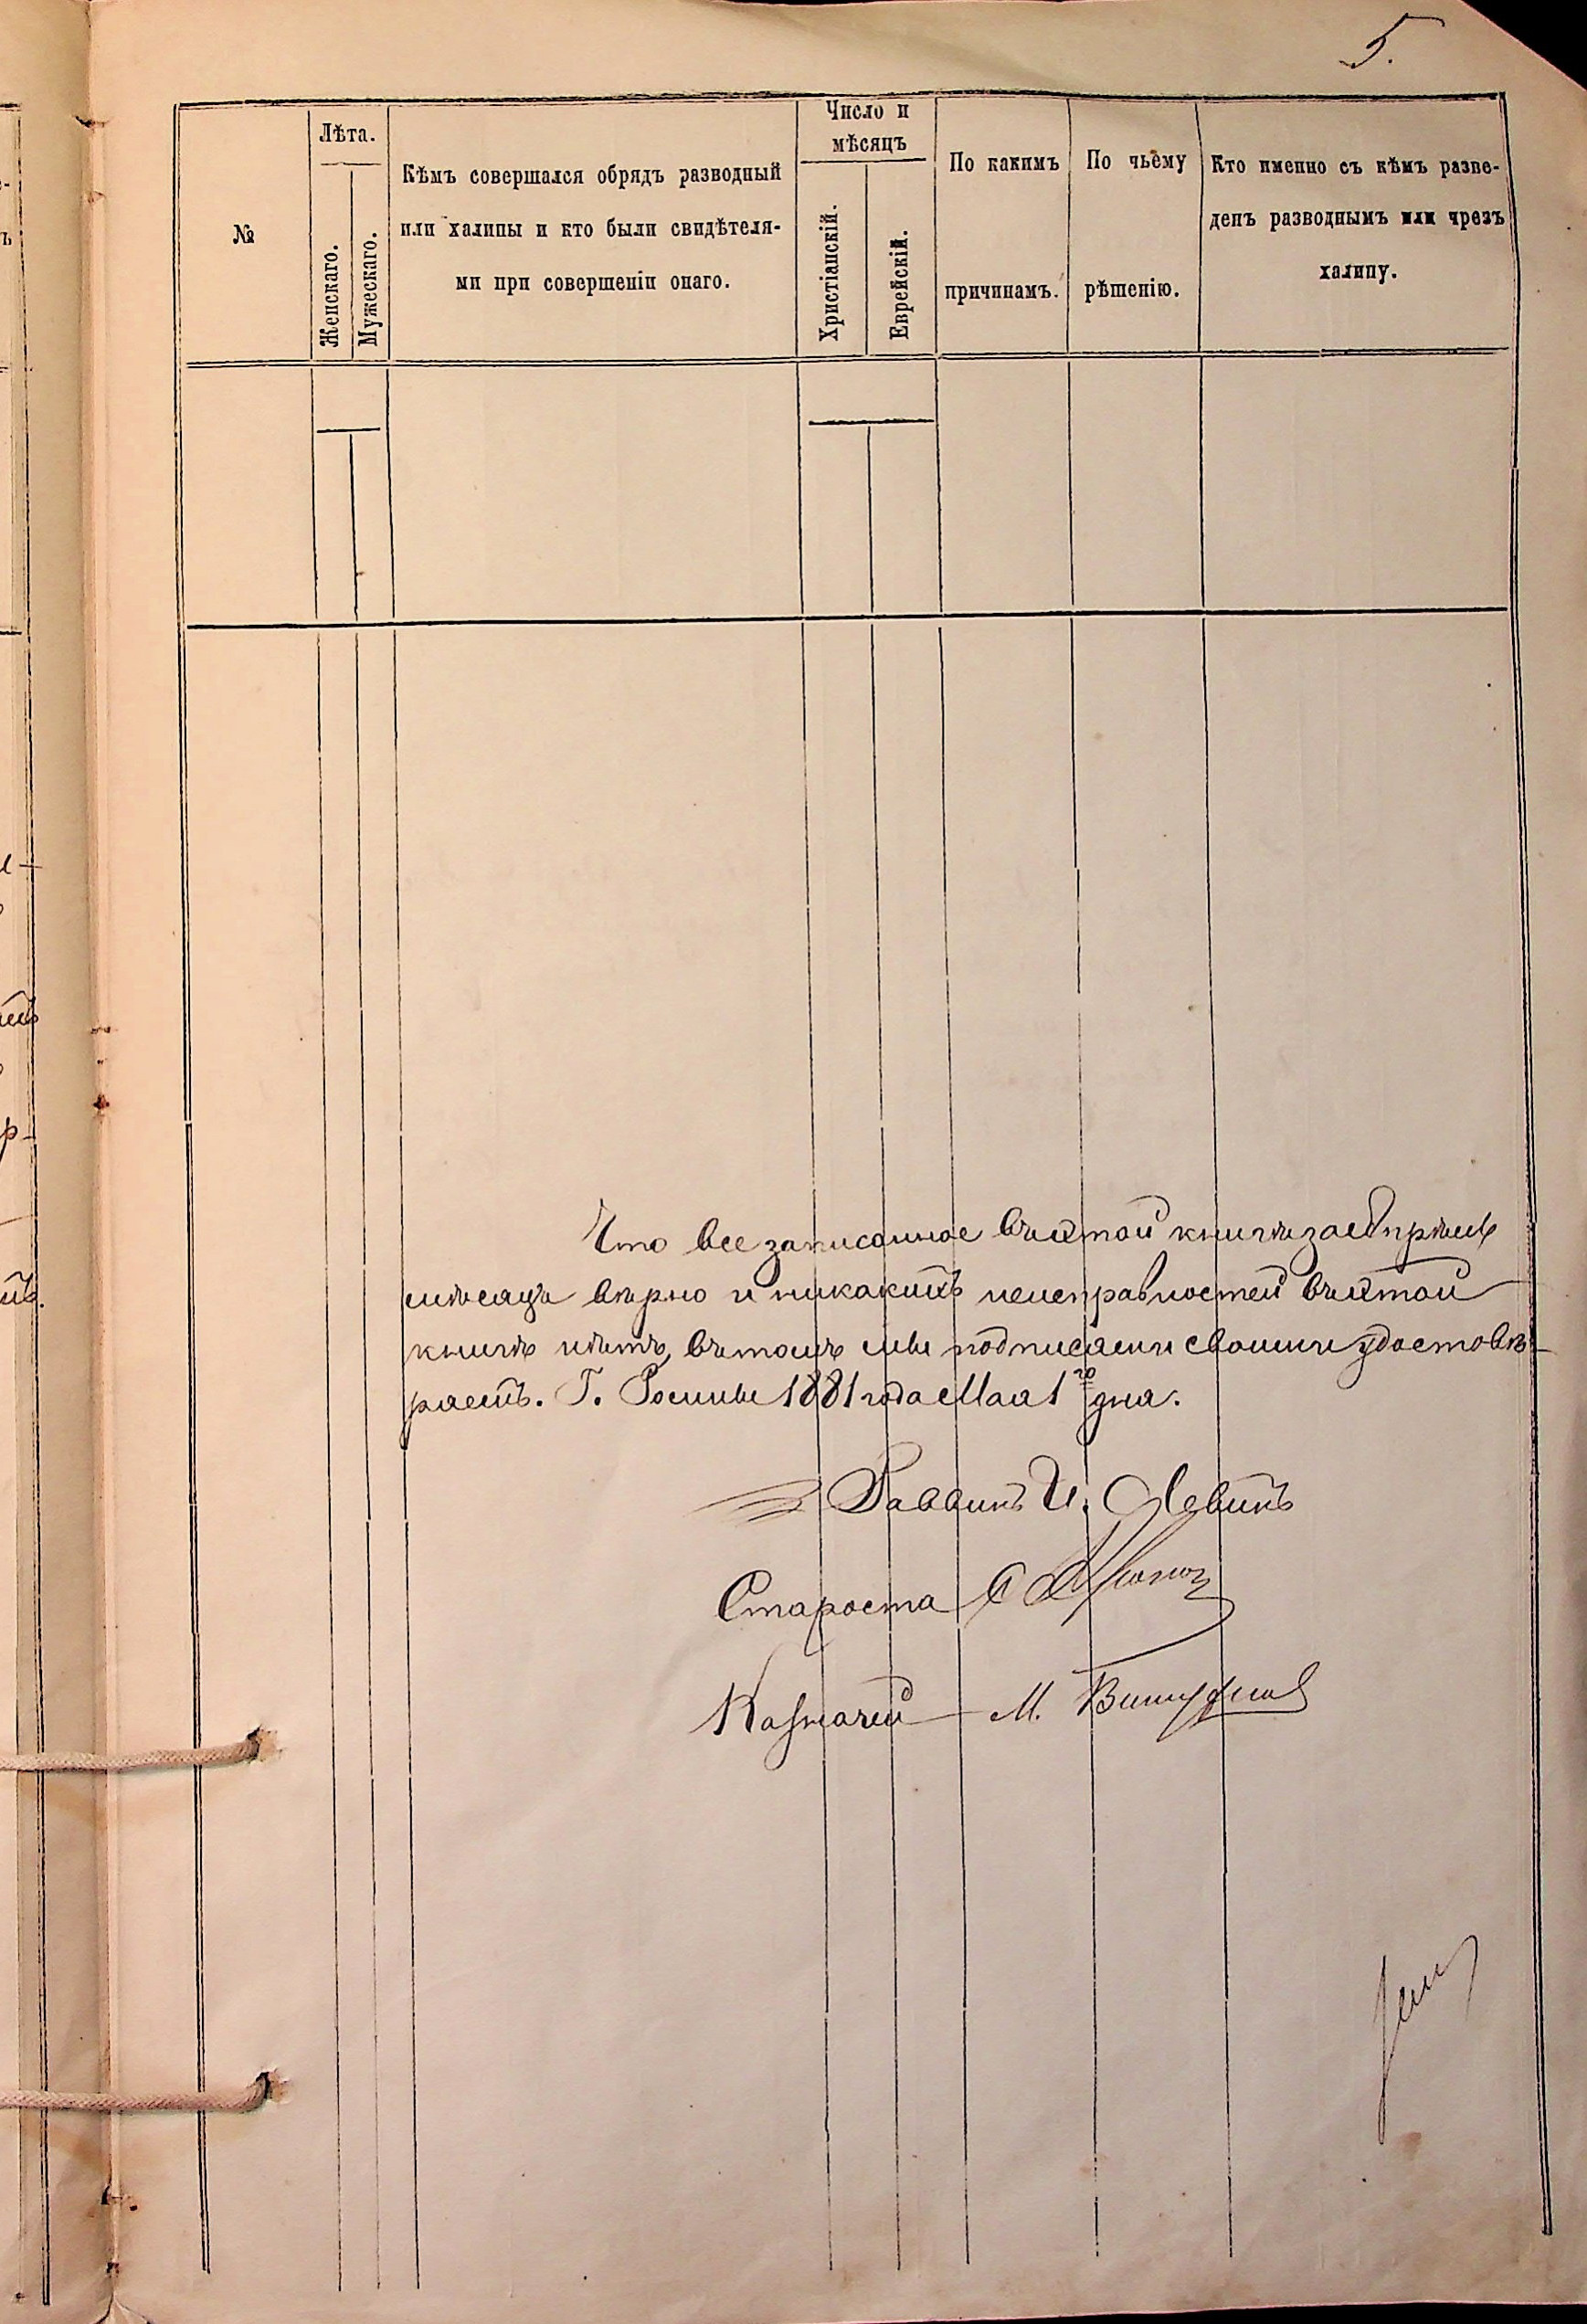 5.
№
Лѣта.
Женскаго.
Мужескаго.
Кѣмъ совершался обрядъ разводный
или халицы и кто были свидѣтеля-
ми при совершеніи онаго.
Число и
мѣсяцъ
Христіанскій.
Еврейскій.
По какимъ
причинамъ.
По чьему
рѣшенію.
Кто именно съ кѣмъ разве-
денъ разводнымъ или чрезъ
халицу.
Что все записанное въ этой книгѣ за Апрѣль
мѣсяцъ вѣрно и никакихъ неисправностей въ этой
книгѣ нѣтъ, въ томъ мы подписями своими удостовѣ-
раемъ. Г. Россины 1881 года Мая 1го дня.
Раввинъ И. Левинъ
Староста
Казначей М.